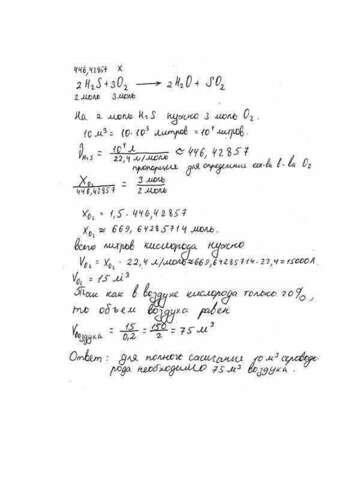 446,42857 x
2H₂S + 3O₂ → 2H₂O + SO₂
2 моль 3 моль
На 2 моль H₂S нужно 3 моль O₂.
10 м³ = 10·10³ литров = 10⁴ литров.
ν H₂S = 10⁴ л / 22,4 л/моль ≈ 446,42857
пропорция для определения кол-ва в-ва O₂
X O₂ / 446,42857 = 3 моль / 2 моль
X O₂ = 1,5 · 446,42857
X O₂ ≈ 669,64285714 моль.
всего литров кислорода нужно
V O₂ = X O₂ · 22,4 л/моль ≈ 669,64285714 · 22,4 = 15000 л
V O₂ = 15 м³
Так как в воздухе кислорода только 20%,
то объем воздуха равен
V воздуха = 15/0,2 = 150/2 = 75 м³
Ответ: для полного сжигания 10 м³ серовода
рода необходимо 75 м³ воздуха.